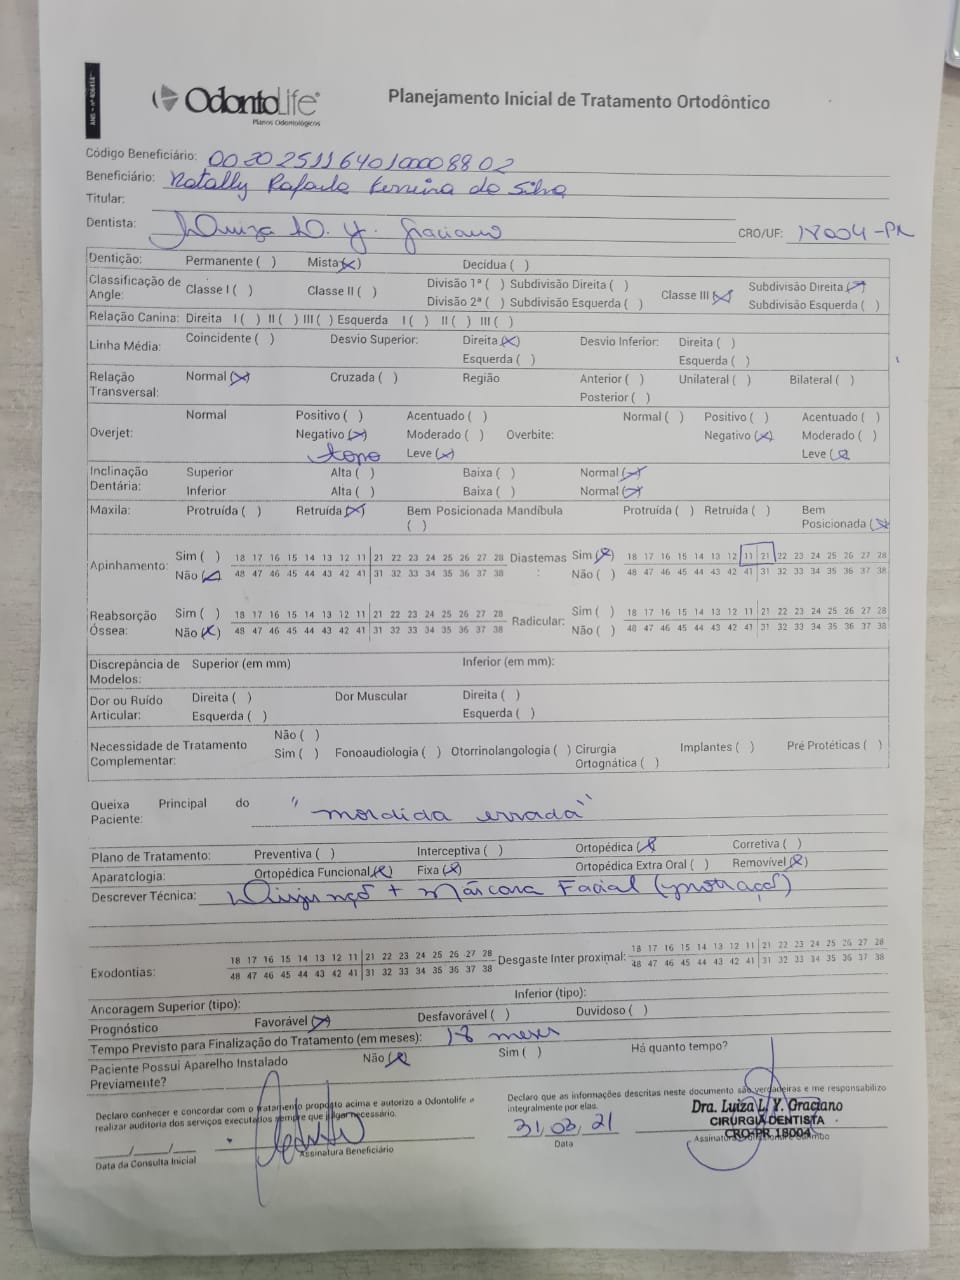 ANS - nº 406414
OdontoLife®
Planos Odontológicos
Planejamento Inicial de Tratamento Ortodôntico
Código Beneficiário: 00202511640100008802
Beneficiário: Natally Rafaela Ferreira da Silva
Titular:
Dentista: Luiza L. Y. Graciano CRO/UF: 18004-PR
Dentição: Permanente ( ) Mista (x) Decídua ( )
Classificação de Angle: Classe I ( ) Classe II ( ) Divisão 1ª ( ) Subdivisão Direita ( ) Classe III (x) Subdivisão Direita (x)
Divisão 2ª ( ) Subdivisão Esquerda ( ) Subdivisão Esquerda ( )
Relação Canina: Direita I ( ) II ( ) III ( ) Esquerda I ( ) II ( ) III ( )
Linha Média: Coincidente ( ) Desvio Superior: Direita (x) Desvio Inferior: Direita ( )
Esquerda ( ) Esquerda ( )
Relação Transversal: Normal (x) Cruzada ( ) Região Anterior ( ) Unilateral ( ) Bilateral ( )
Posterior ( )
Overjet: Normal Positivo ( ) Acentuado ( ) Normal ( ) Positivo ( ) Acentuado ( )
Negativo (x) Moderado ( ) Overbite: Negativo (x) Moderado ( )
topo Leve (x) Leve (x)
Inclinação Dentária: Superior Alta ( ) Baixa ( ) Normal (x)
Inferior Alta ( ) Baixa ( ) Normal (x)
Maxila: Protruída ( ) Retruída (x) Bem Posicionada ( ) Mandíbula Protruída ( ) Retruída ( ) Bem Posicionada (x)
Apinhamento: Sim ( ) 18 17 16 15 14 13 12 11 21 22 23 24 25 26 27 28 Diastemas: Sim (x) 18 17 16 15 14 13 12 11 21 22 23 24 25 26 27 28
Não (x) 48 47 46 45 44 43 42 41 31 32 33 34 35 36 37 38 Não ( ) 48 47 46 45 44 43 42 41 31 32 33 34 35 36 37 38
Reabsorção Óssea: Sim ( ) 18 17 16 15 14 13 12 11 21 22 23 24 25 26 27 28 Radicular: Sim ( ) 18 17 16 15 14 13 12 11 21 22 23 24 25 26 27 28
Não (x) 48 47 46 45 44 43 42 41 31 32 33 34 35 36 37 38 Não ( ) 48 47 46 45 44 43 42 41 31 32 33 34 35 36 37 38
Discrepância de Modelos: Superior (em mm) Inferior (em mm):
Dor ou Ruído Articular: Direita ( ) Dor Muscular Direita ( )
Esquerda ( ) Esquerda ( )
Necessidade de Tratamento Complementar: Não ( )
Sim ( ) Fonoaudiologia ( ) Otorrinolangologia ( ) Cirurgia Ortognática ( ) Implantes ( ) Pré Protéticas ( )
Queixa Principal do Paciente: "mordida errada"
Plano de Tratamento: Preventiva ( ) Interceptiva ( ) Ortopédica (x) Corretiva ( )
Aparatologia: Ortopédica Funcional (x) Fixa (x) Ortopédica Extra Oral ( ) Removível (x)
Descrever Técnica: Disjunção + Máscara Facial (protração)
Exodontias: 18 17 16 15 14 13 12 11 21 22 23 24 25 26 27 28 Desgaste Inter proximal: 18 17 16 15 14 13 12 11 21 22 23 24 25 26 27 28
48 47 46 45 44 43 42 41 31 32 33 34 35 36 37 38 48 47 46 45 44 43 42 41 31 32 33 34 35 36 37 38
Ancoragem Superior (tipo): Inferior (tipo):
Prognóstico Favorável (x) Desfavorável ( ) Duvidoso ( )
Tempo Previsto para Finalização do Tratamento (em meses): 18 meses
Paciente Possui Aparelho Instalado Previamente? Não (x) Sim ( ) Há quanto tempo?
Declaro conhecer e concordar com o tratamento proposto acima e autorizo a Odontolife a
realizar auditoria dos serviços executados sempre que julgar necessário.
Declaro que as informações descritas neste documento são verdadeiras e me responsabilizo
integralmente por elas.
Dra. Luiza L. Y. Graciano
CIRURGIÃ DENTISTA
CRO-PR 18004
31/03/21
__/__/__
Data da Consulta Inicial Assinatura Beneficiário Data